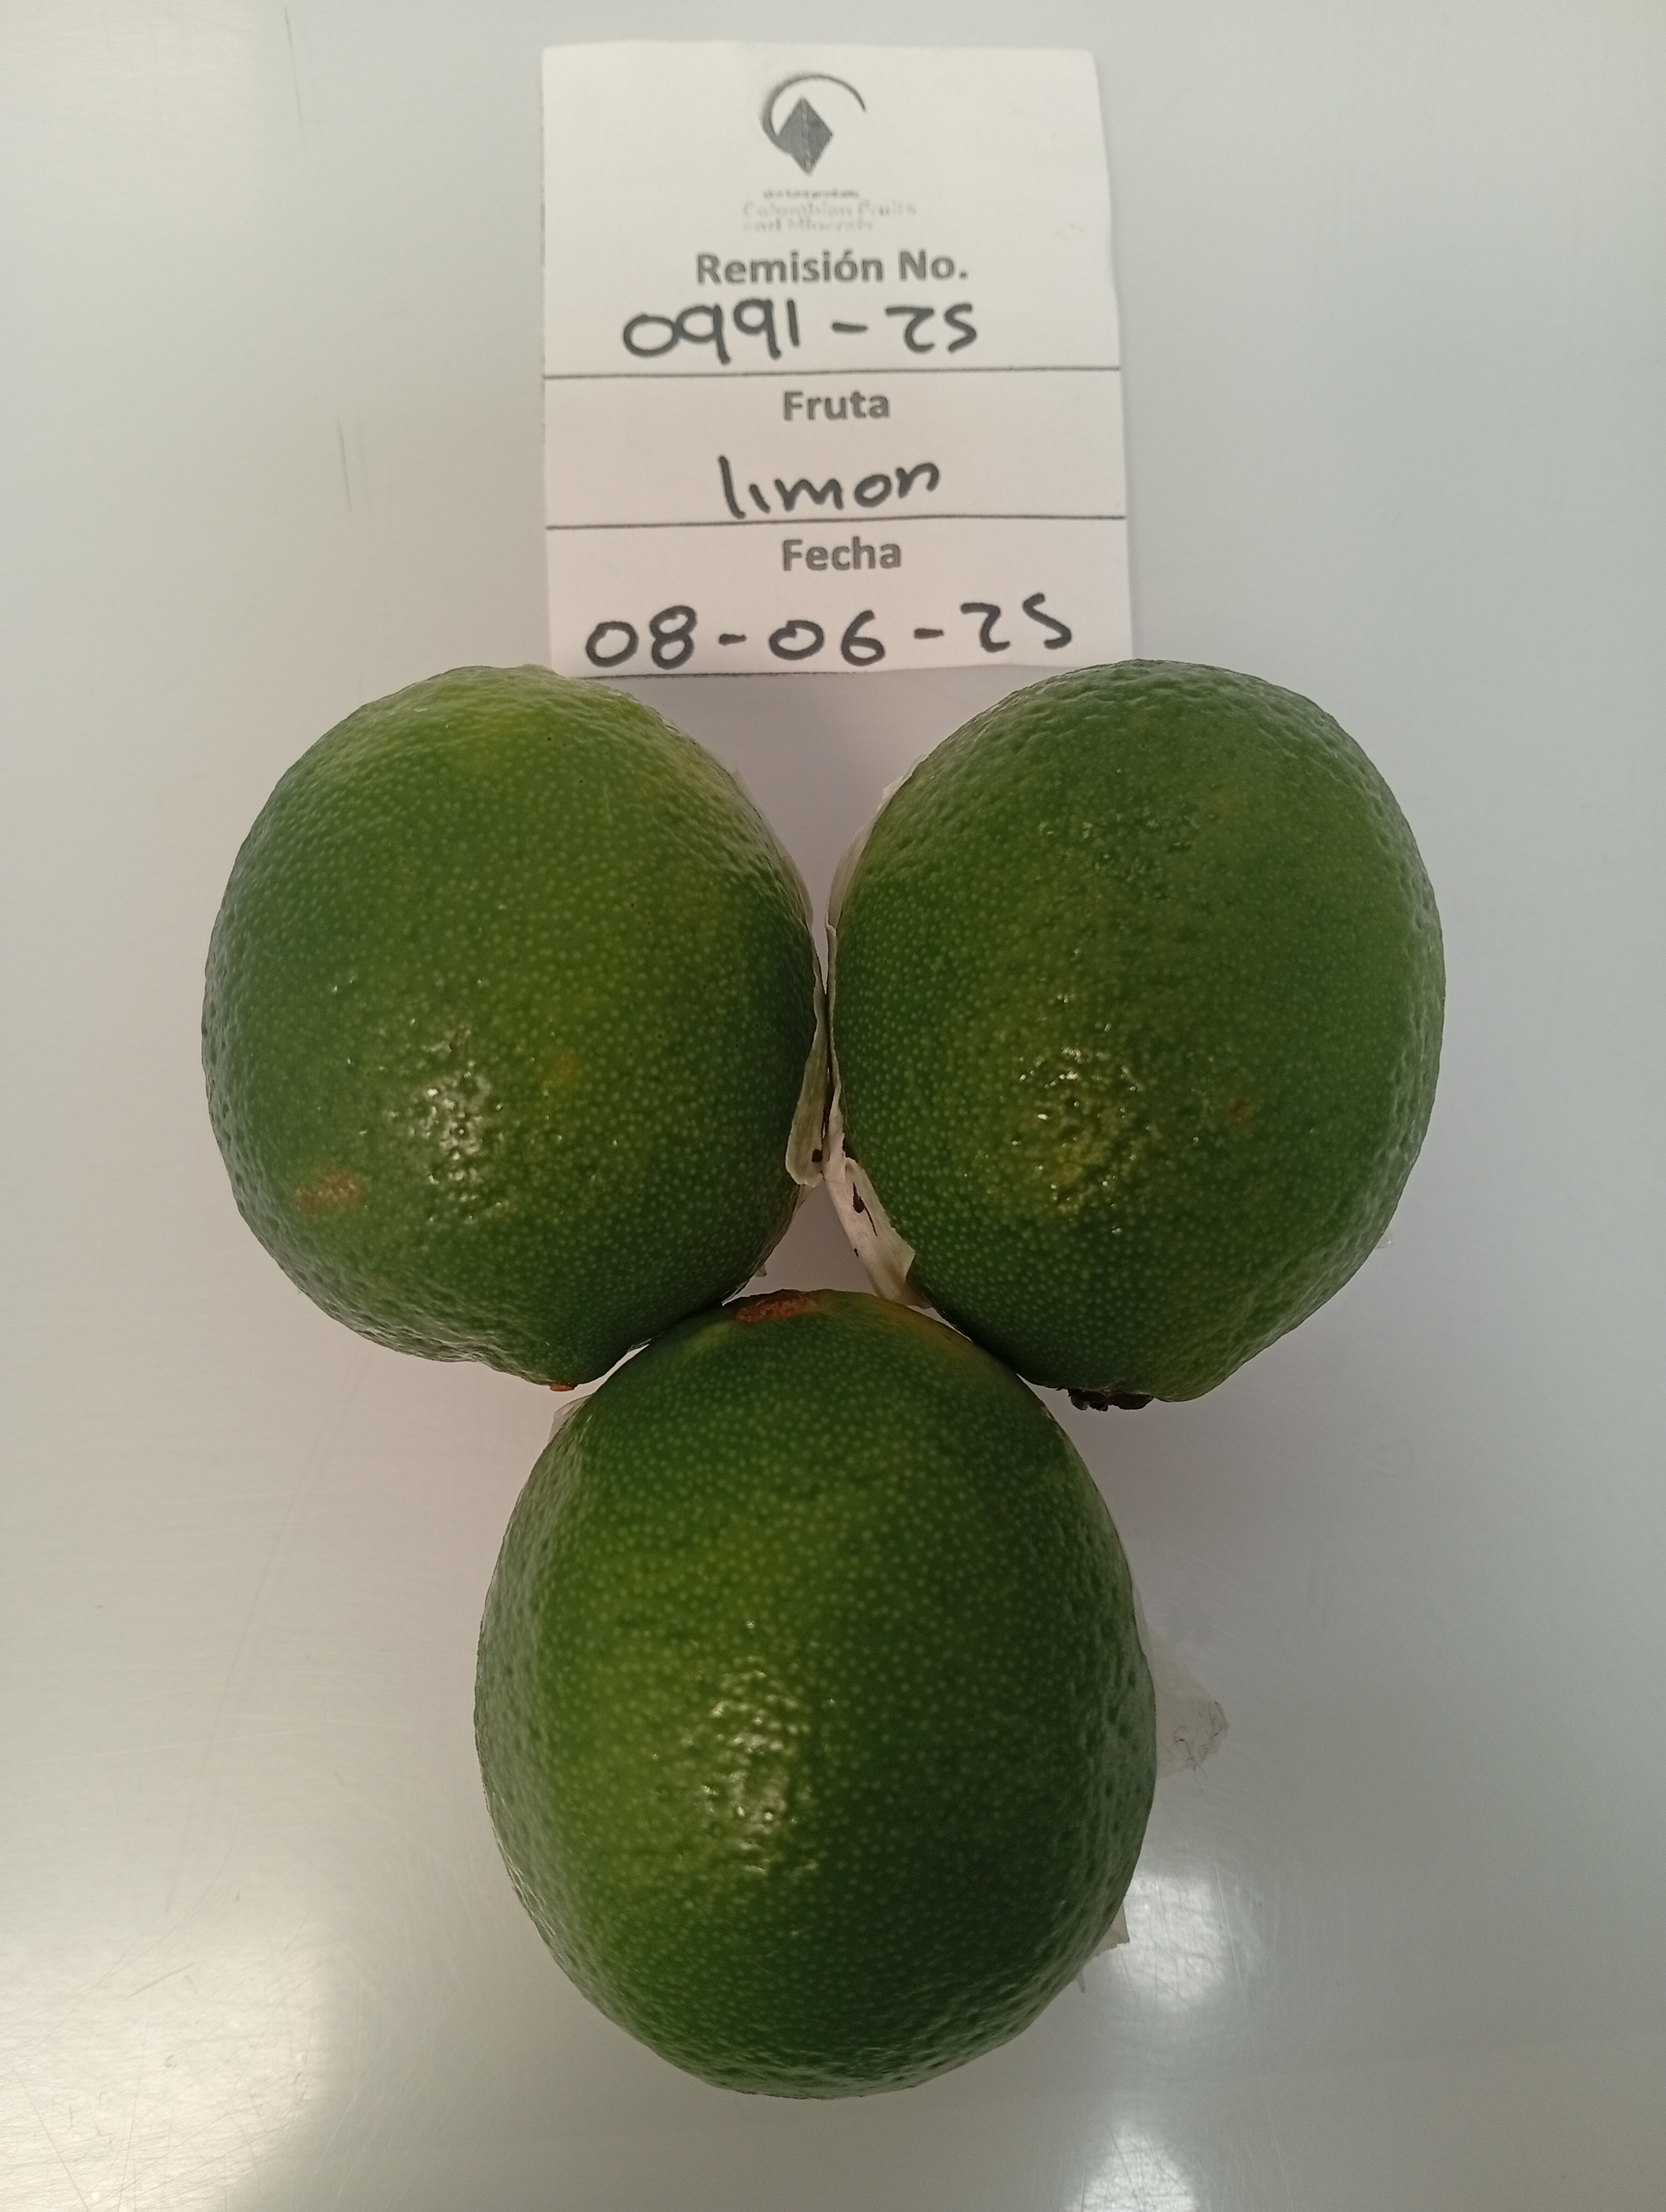 Colombian Fruits
and Minerals
Remisión No.
0991-25
Fruta
limon
Fecha
08-06-25